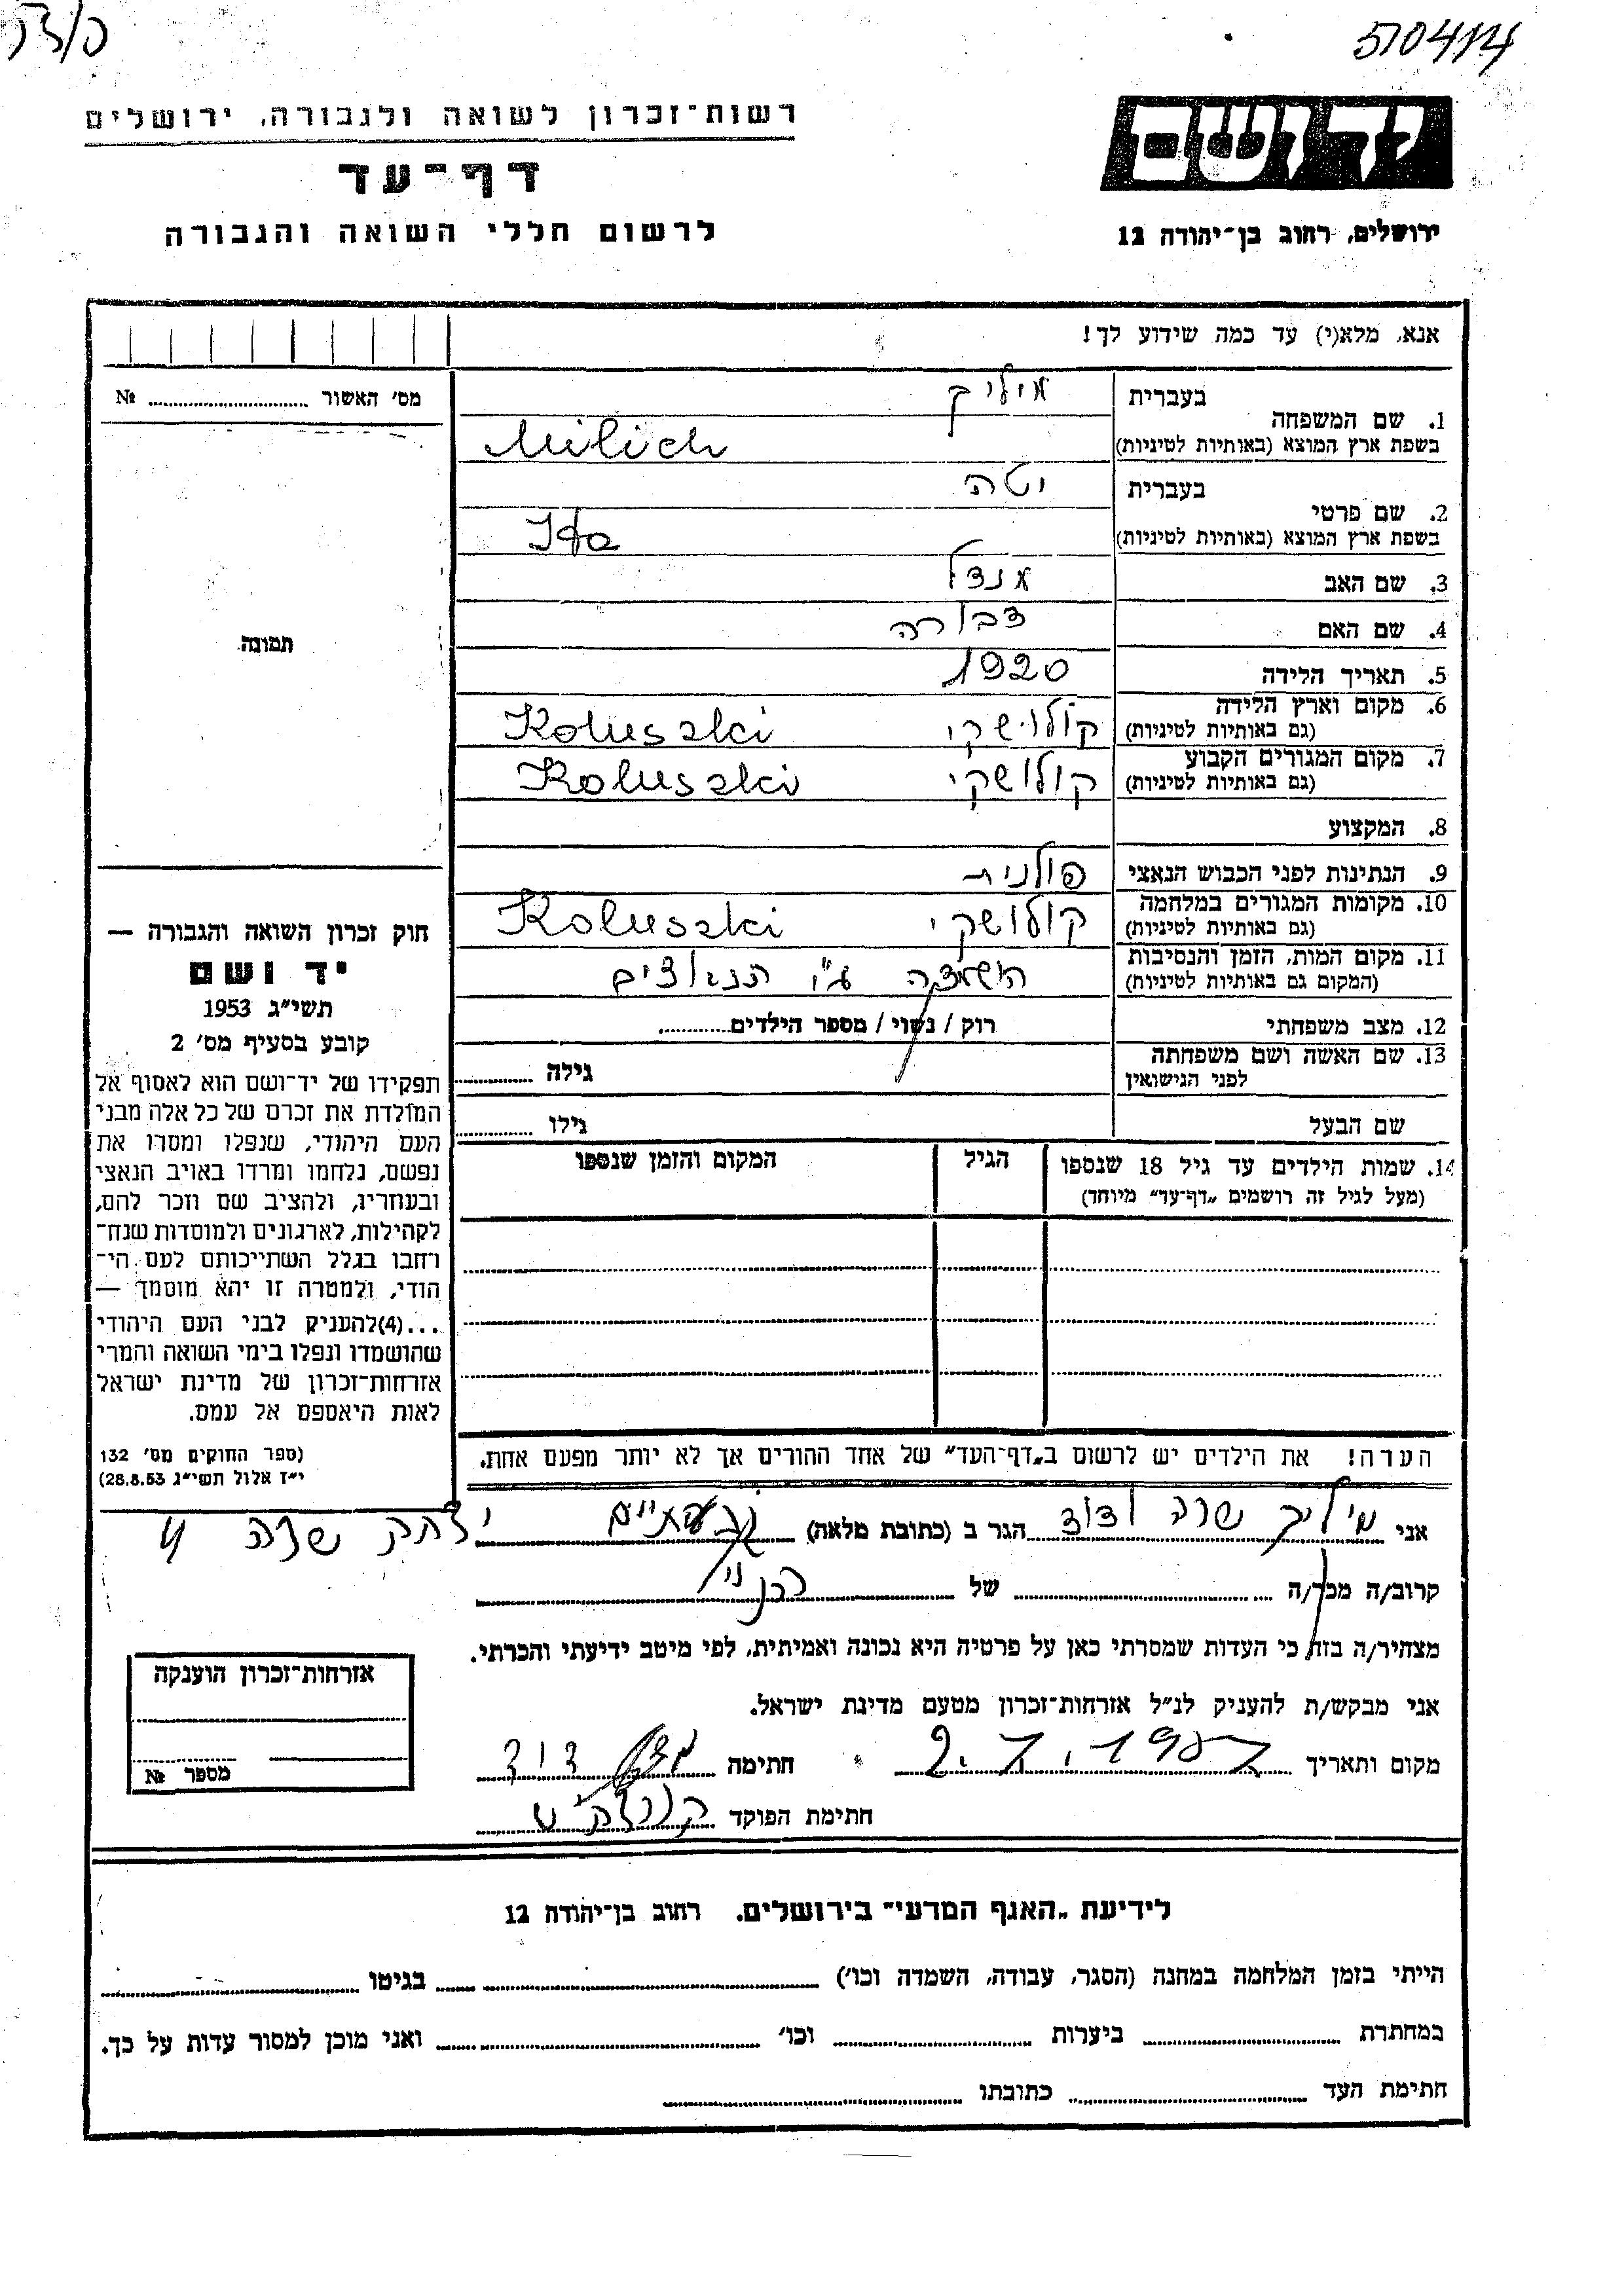 510414
רשות־זכרון לשואה ולגבורה, ירושלים
יד ושם
דף־עד
לרשום חללי השואה והגבורה
ירושלים, רחוב בן־יהודה 12
אנא, מלא(י) עד כמה שידוע לך!
מס׳ האשור № 
תמונה
1. שם המשפחה
בעברית מיליק
בשפת ארץ המוצא (באותיות לטיניות) Milich
2. שם פרטי
בעברית יטה
בשפת ארץ המוצא (באותיות לטיניות) Ita
3. שם האב מנדל
4. שם האם דבורה
5. תאריך הלידה 1920
6. מקום וארץ הלידה (גם באותיות לטיניות) קולוישקי Koluszki
7. מקום המגורים הקבוע (גם באותיות לטיניות) קולושקי Koluszki
8. המקצוע
9. הנתינות לפני הכבוש הנאצי פולנית
10. מקומות המגורים במלחמה (גם באותיות לטיניות) קולושקי Koluszki
11. מקום המות, הזמן והנסיבות (המקום גם באותיות לטיניות) הושמדה ע״י הנאצים
12. מצב משפחתי רוק / נשוי / מספר הילדים
13. שם האשה ושם משפחתה לפני הנישואין גילה
שם הבעל גילו
14. שמות הילדים עד גיל 18 שנספו (מעל לגיל זה רושמים „דף־עד״ מיוחד)
הגיל
המקום והזמן שנספו
הערה! את הילדים יש לרשום ב„דף־העד״ של אחד ההורים אך לא יותר מפעם אחת.
חוק זכרון השואה והגבורה —
יד ושם
תשי״ג 1953
קובע בסעיף מס׳ 2
תפקידו של יד־ושם הוא לאסוף אל
המולדת את זכרם של כל אלה מבני
העם היהודי, שנפלו ומסרו את
נפשם, נלחמו ומרדו באויב הנאצי
ובעוזריו, ולהציב שם וזכר להם,
לקהילות, לארגונים ולמוסדות שנח־
רבו בגלל השתייכותם לעם הי־
הודי, ולמטרה זו יהא מוסמך —
...(4)להעניק לבני העם היהודי
שהושמדו ונפלו בימי השואה והמרי
אזרחות־זכרון של מדינת ישראל
לאות היאספם אל עמם.
(ספר החוקים מס׳ 132
י״ז אלול תשי״ג 28.8.53)
אני מיליק שרה ודוד הגר ב (כתובת מלאה) גבעתיים יצחק שדה
קרוב/ה מכר/ה של הנ״ל
מצהיר/ה בזה כי העדות שמסרתי כאן על פרטיה היא נכונה ואמיתית, לפי מיטב ידיעתי והכרתי.
אני מבקש/ת להעניק לנ״ל אזרחות־זכרון מטעם מדינת ישראל.
מקום ותאריך 2.7.1957 חתימה דוד
חתימת הפוקד
אזרחות־זכרון הוענקה
מספר №
לידיעת „האגף המדעי״ בירושלים. רחוב בן־יהודה 12
הייתי בזמן המלחמה במחנה (הסגר, עבודה, השמדה וכו׳) בגיטו
במחתרת ביערות וכו׳ ואני מוכן למסור עדות על כך.
חתימת העד כתובתו